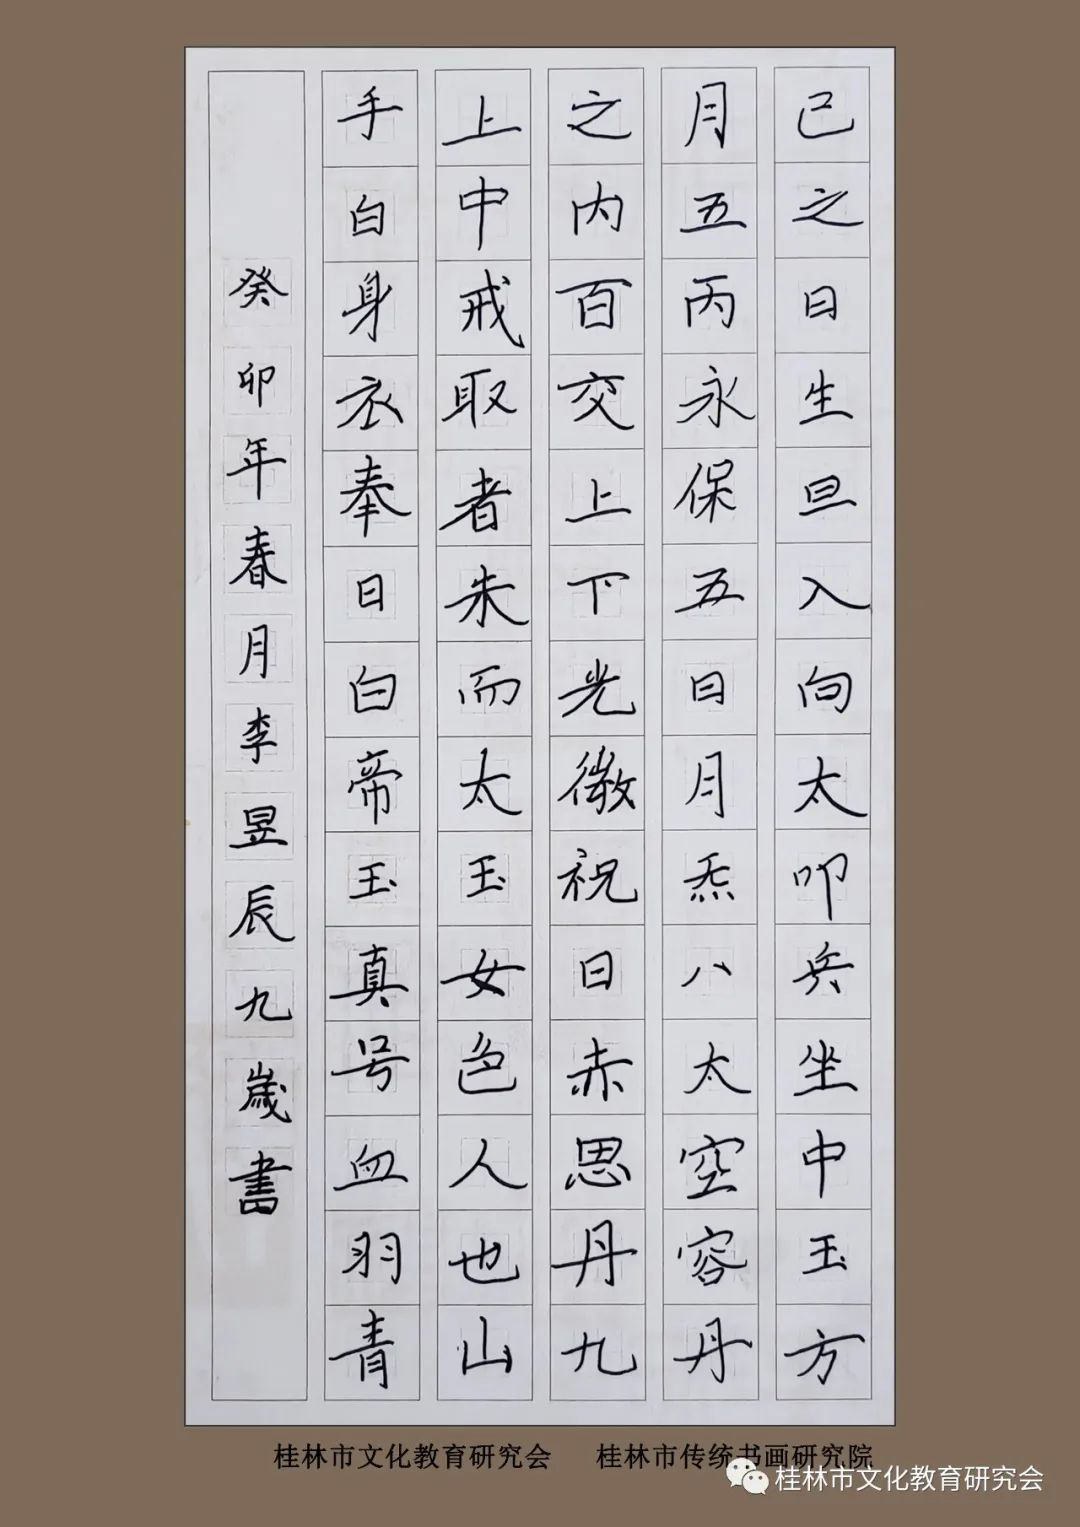 已之日生旦入向太叩兵坐中玉方
月五丙永保五日月炁八太空容丹
之内百交上下光微祝日赤思丹九
上中戒取者朱而太玉女色人也山
手白身衣奉日白帝玉真号血羽青
癸卯年春月李昱辰九歲書
桂林市文化教育研究会 桂林市传统书画研究院
桂林市文化教育研究会